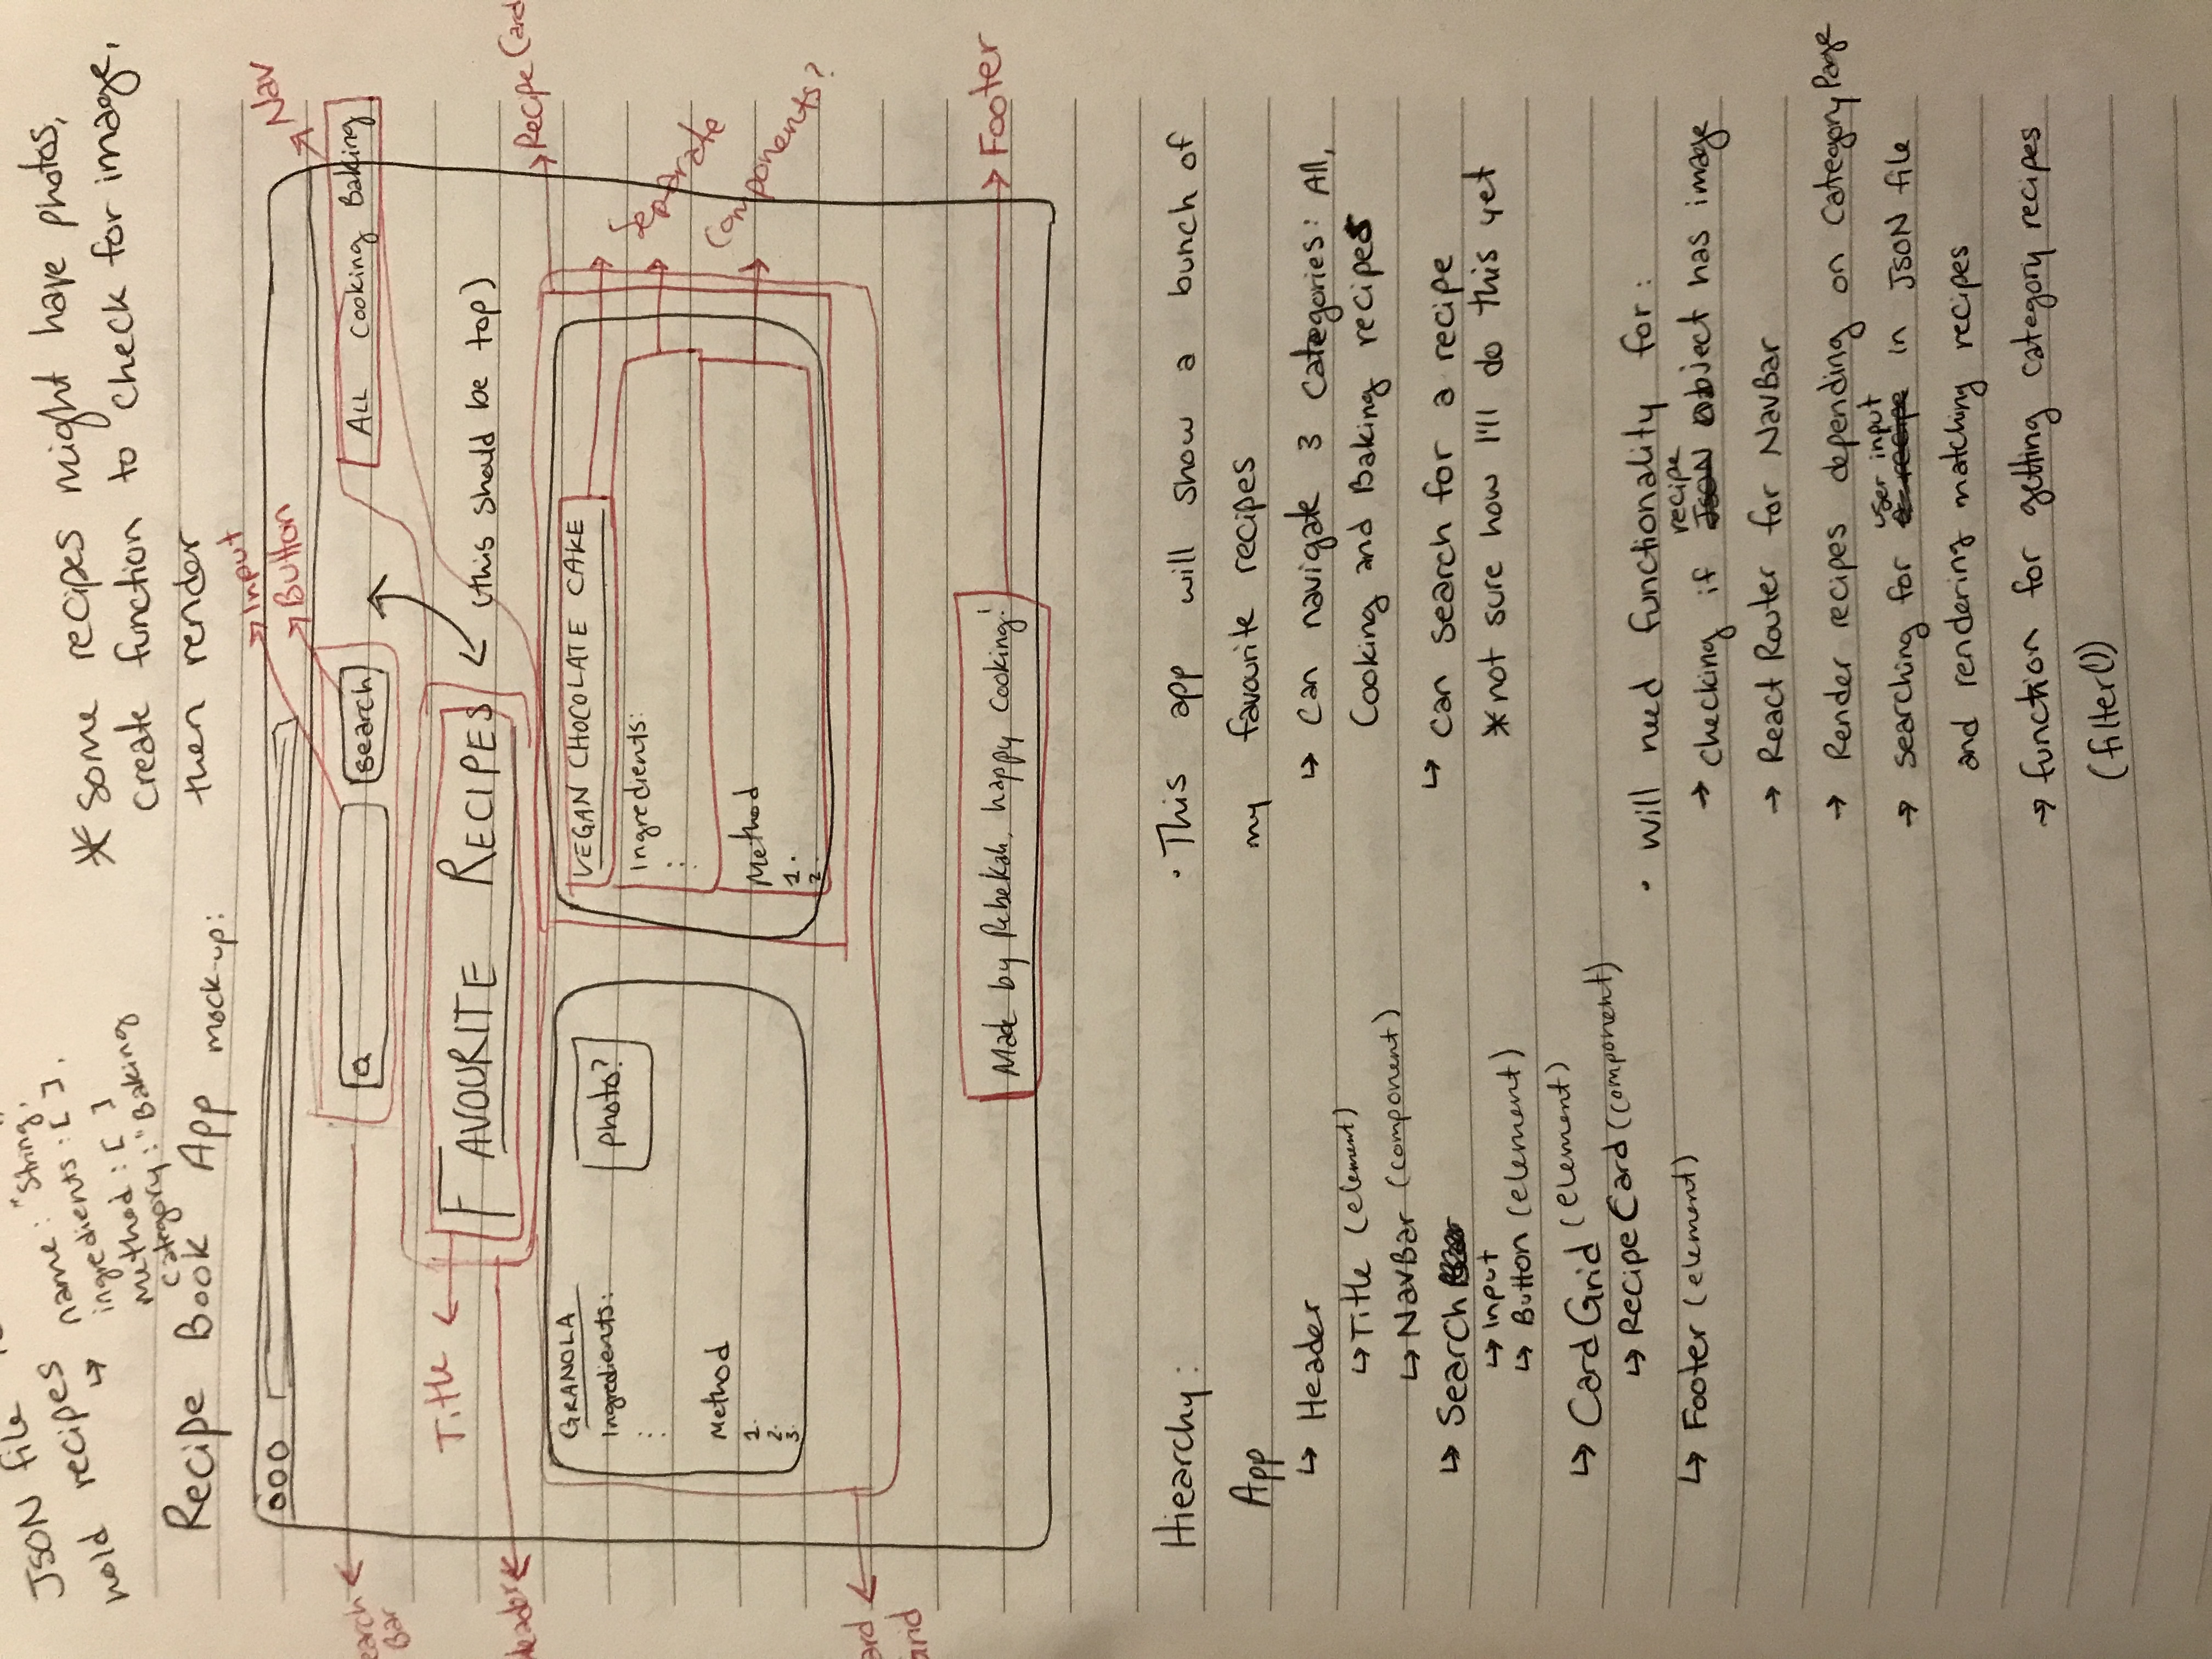 JSON file
hold recipes
↳ name: "String",
ingredients: [ ],
method: [ ]
category: "Baking
* some recipes might have photos,
create function to check for image,
then render
Recipe Book App mock-up:
Input
Button
Nav
earch
Bar
search
ALL Cooking Baking
Title
FAVOURITE RECIPES
(this should be top)
Header
Recipe Card
GRANOLA
Ingredients:
photo?
Method
1.
2.
3.
VEGAN CHOCOLATE CAKE
Ingredients:
Method
1.
2.
Separate
Components?
ard
Grid
Made by Rebekah, happy cooking!
Footer
Hiearchy:
App
↳ Header
↳ Title (element)
↳ NavBar (component)
↳ Search
↳ Input
↳ Button (element)
↳ Card Grid (element)
↳ Recipe Card (component)
↳ Footer (element)
· This app will show a bunch of
my favourite recipes
↳ can navigate 3 categories: All,
Cooking and Baking recipes
↳ can search for a recipe
* not sure how I'll do this yet
· will need functionality for:
→ checking if recipe JSON object has image
→ React Router for NavBar
→ Render recipes depending on Category Page
→ searching for user input a recipe in JSON file
and rendering matching recipes
→ function for getting category recipes
(filter())